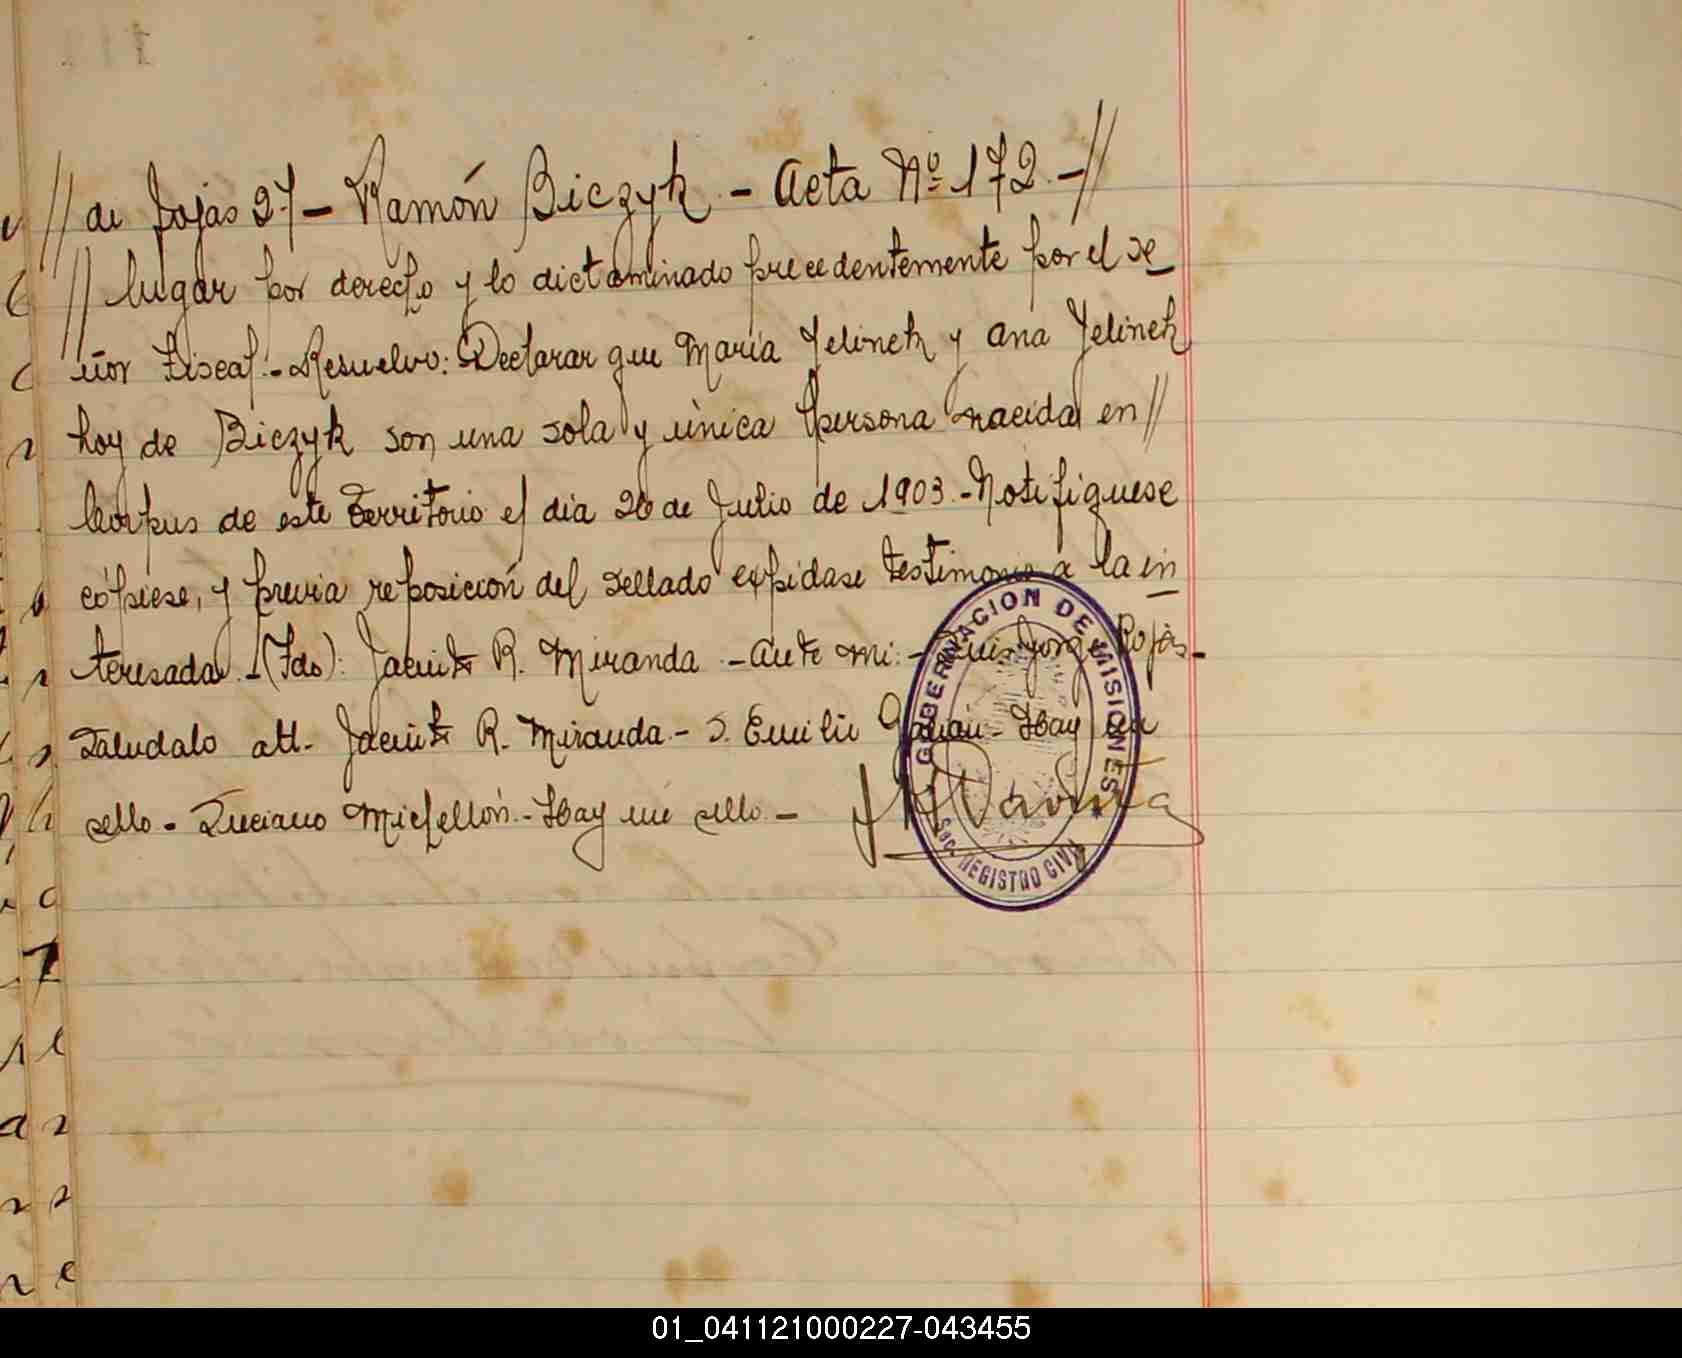 // de fojas 27 - Ramón Biczyk - Acta Nº 172 - //
// lugar por derecho y lo dictaminado precedentemente por el se
ñor Fiscal. - Resuelvo: Declarar que María Jelinek y Ana Jelinek
hoy de Biczyk son una sola y única persona nacida en //
Corpus de este territorio el dia 26 de Julio de 1903. - Notifiquese
cópiese, y previa reposición del sellado expidase testimonio a la in
teresada. - (Fdo): Jacinto R. Miranda - Ante mi: - Luis Jorge Rojas -
Saludalo att. Jacinto R. Miranda - S. Emilio - Hay un
sello - Luciano Michellón. - Hay un sello -
GOBERNACION DE MISIONES
Sec. REGISTRO CIVIL
01_041121000227-043455